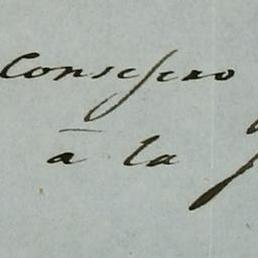 Consejero
á la